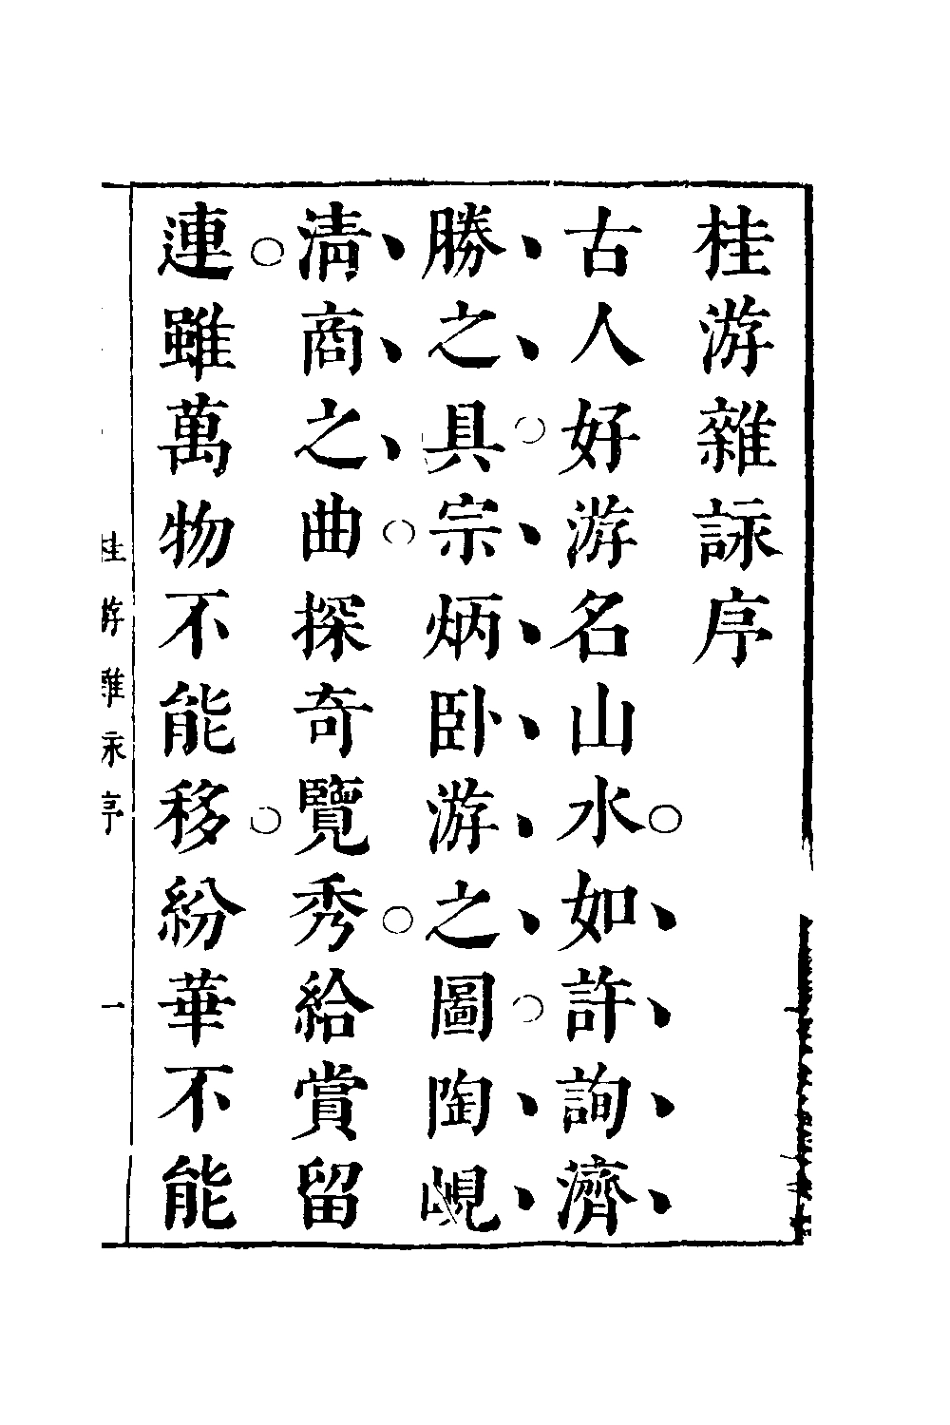 桂游雜詠序
古人好游名山水如許詢濟
勝之具宗炳卧游之圖陶峴
清商之曲探奇覽秀給賞留
連雖萬物不能移紛華不能
桂游雜永序
一